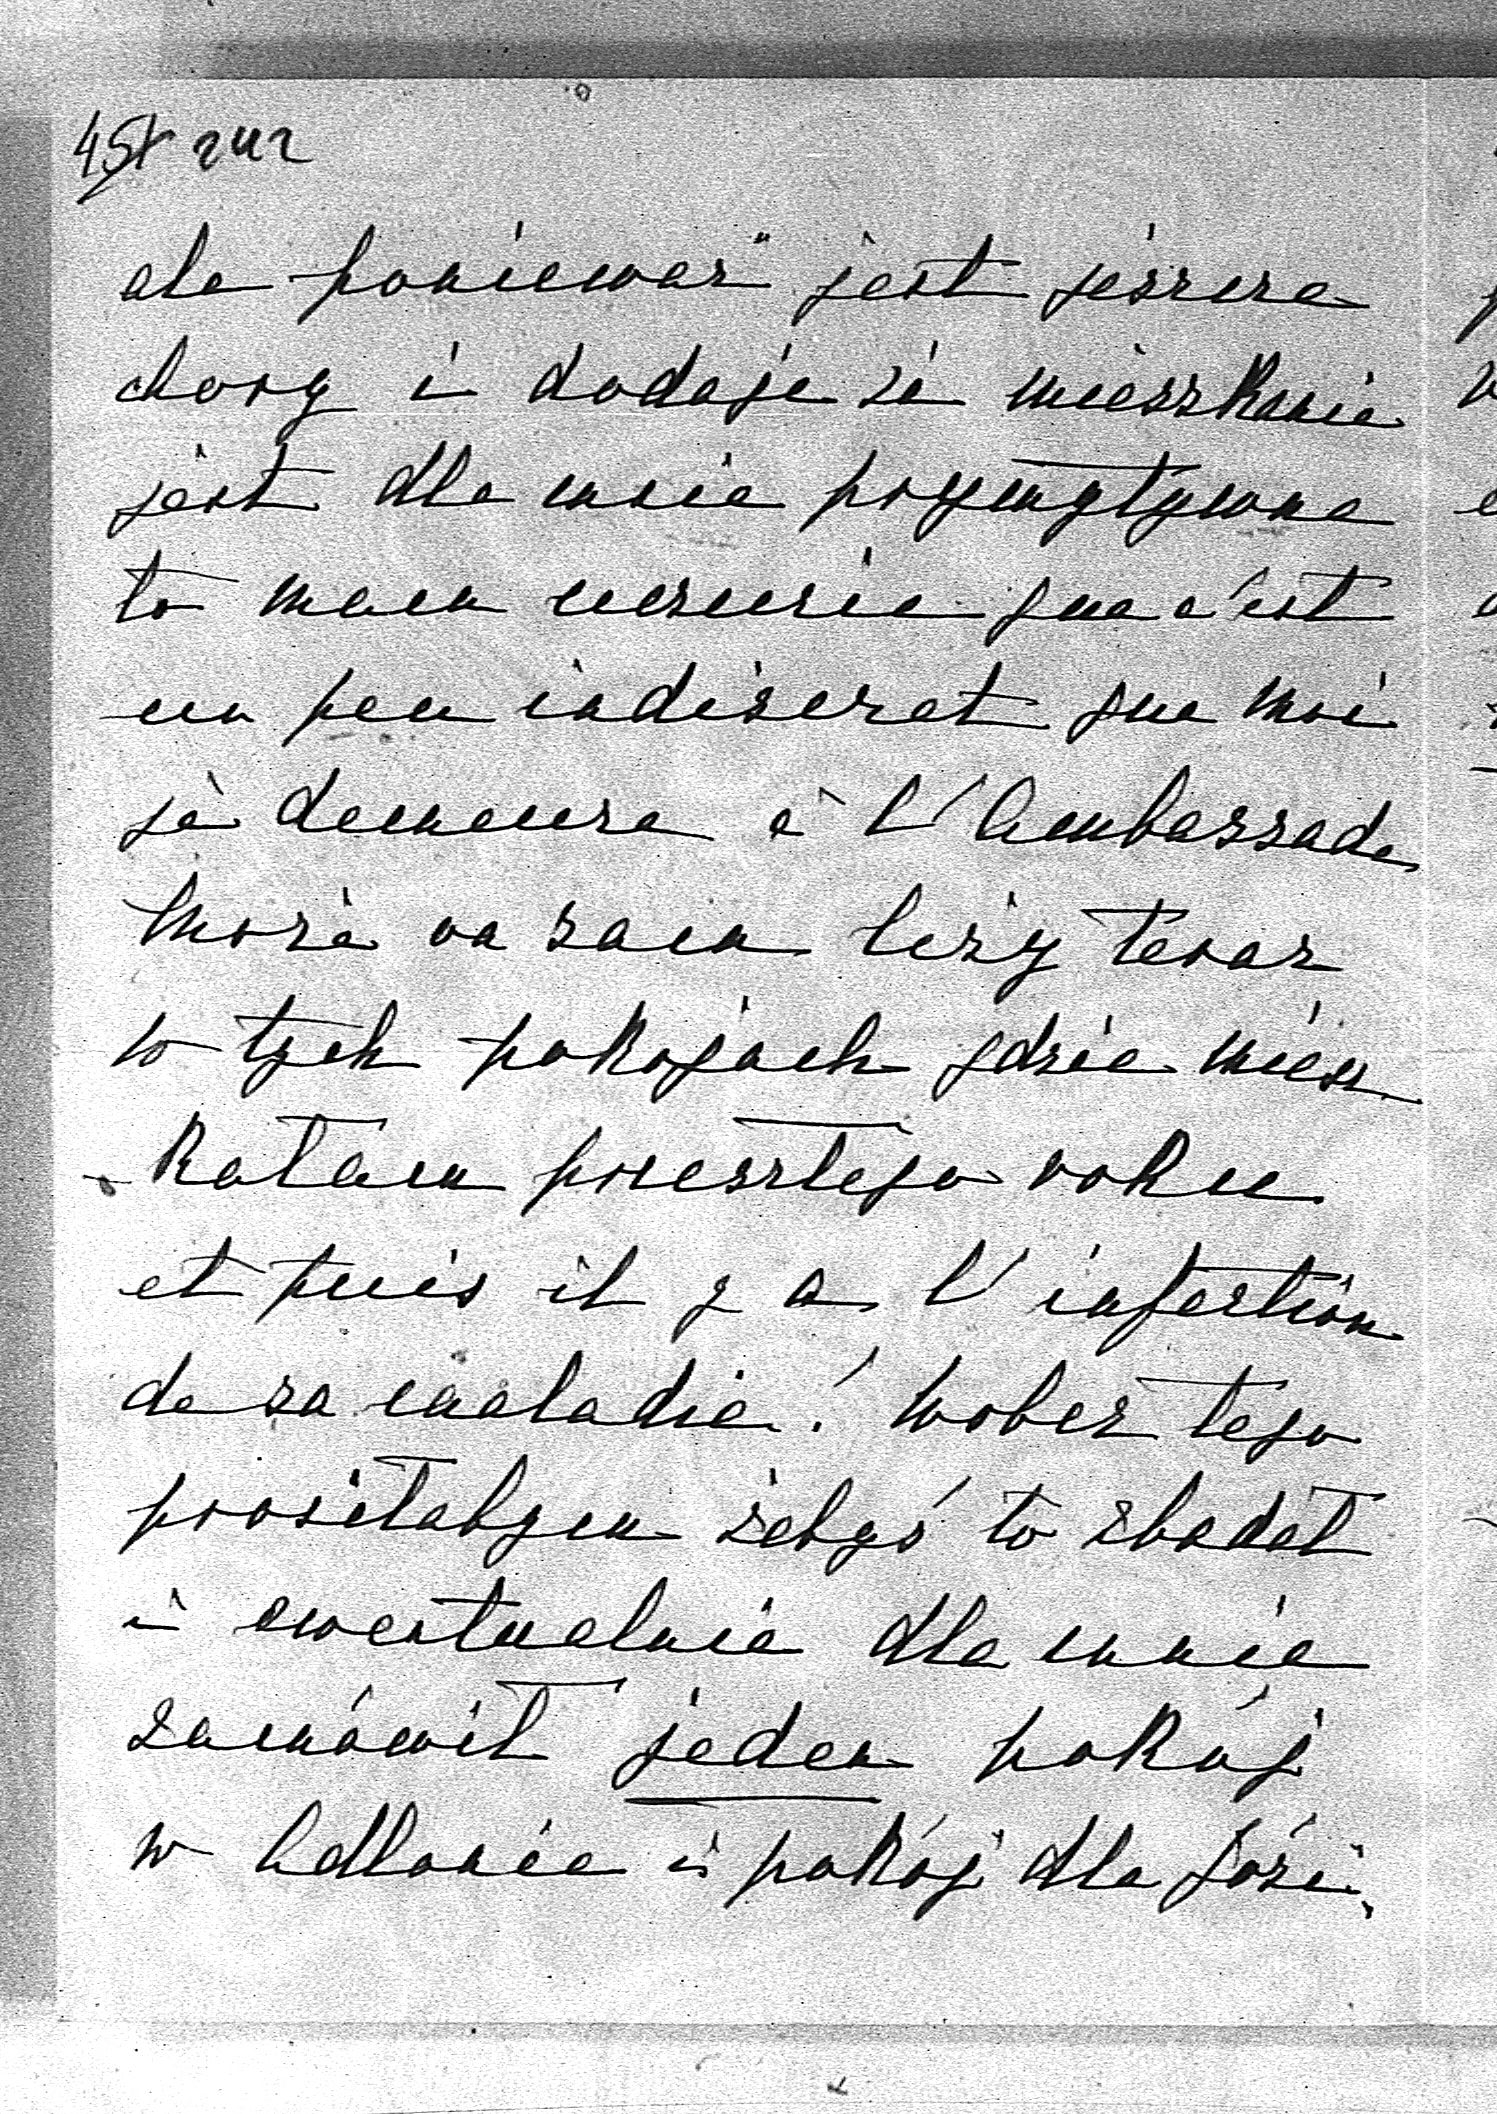 242
ale ponieważ jest jeszcze
chory i dodaje że mieszkanie
jest dla mnie prymytywne
to mam uczucie que c'est
un peu indiscret que moi
je demeure à l'Ambassade
może on sam leży teraz
w tych pokojach gdzie miesz
kałam przeszłego roku
et puis il y a l'infection
de sa maladie! Wobec tego
prosiłabym żebyś to zbadał
i ewentualnie dla mnie
zamówił jeden pokój
w Adlonie i pokój dla Józi,